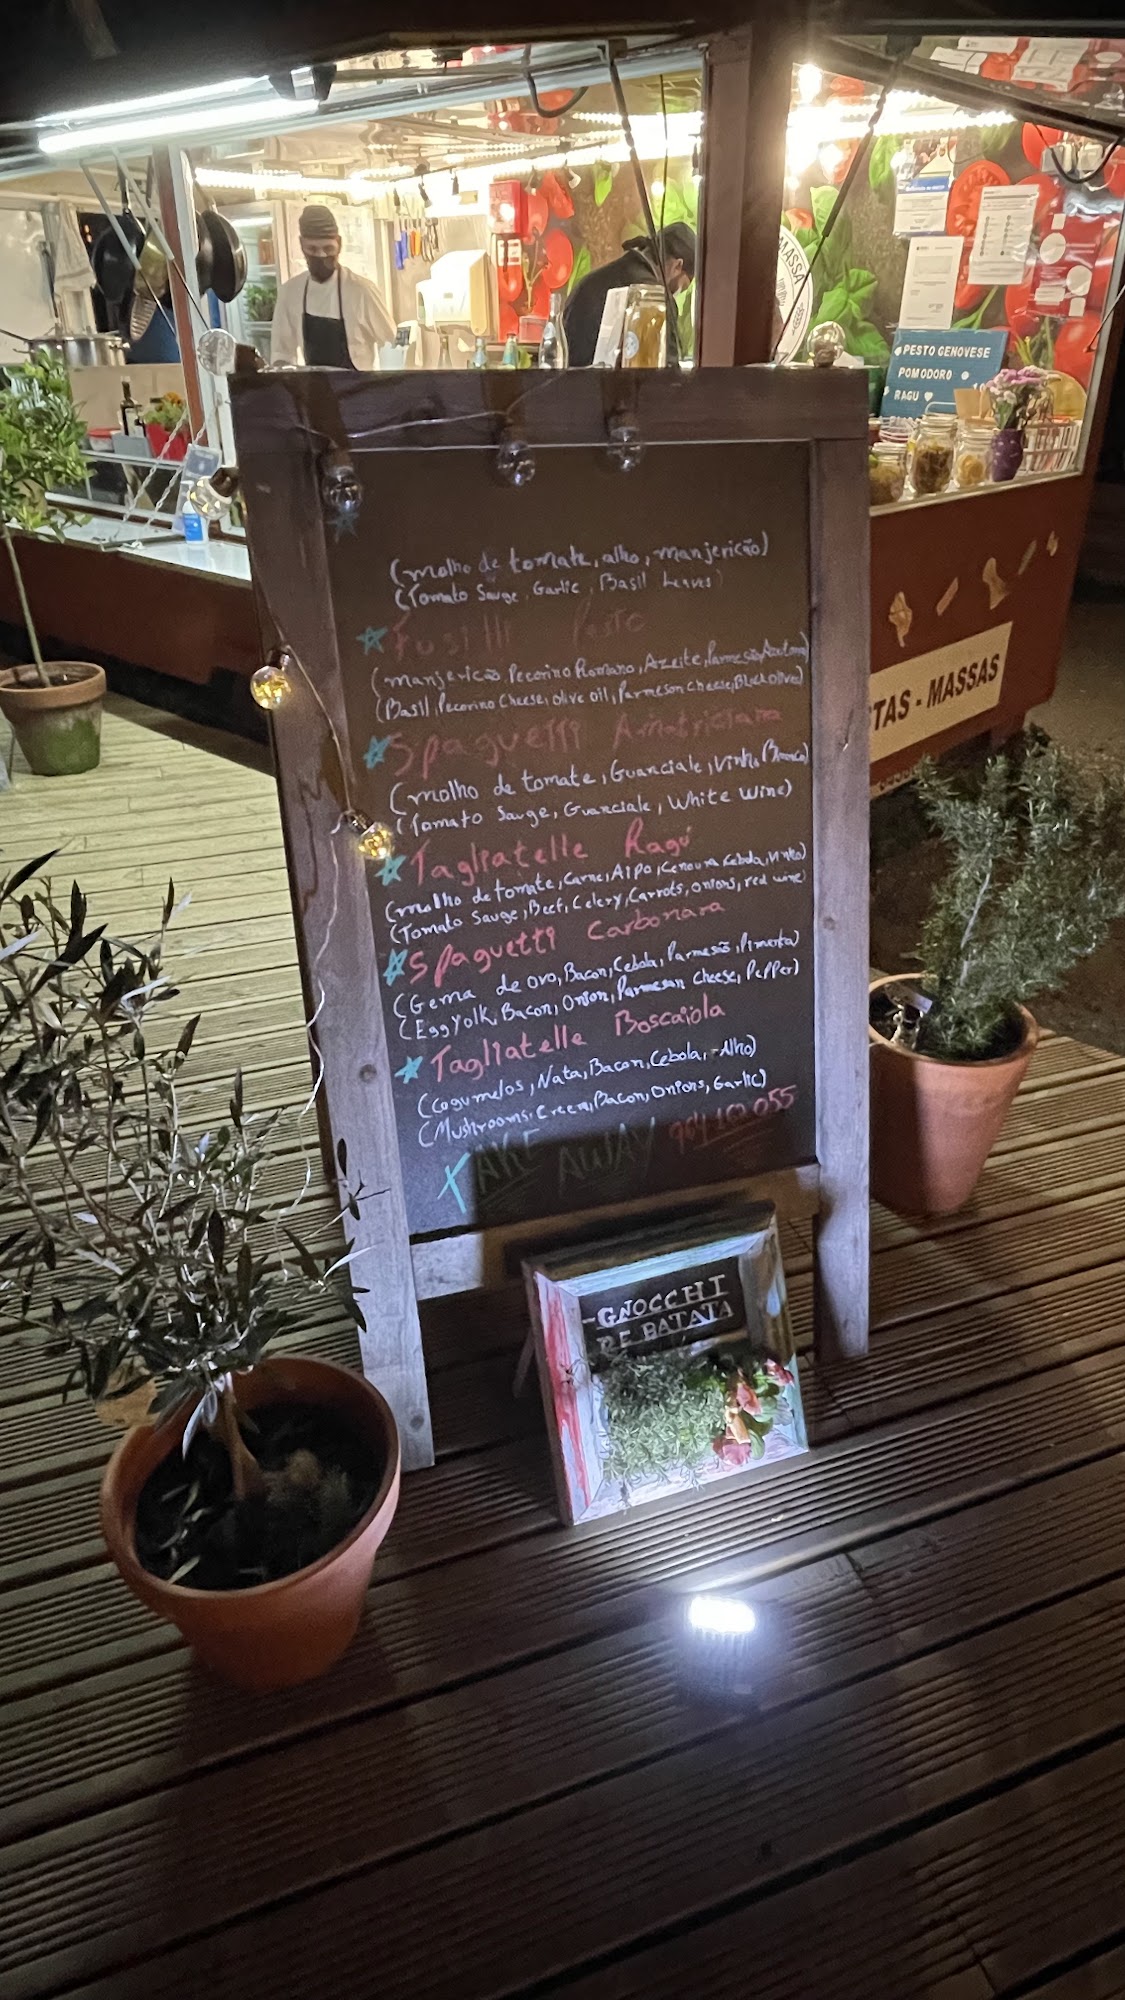 MASSA
PESTO GENOVESE
POMODORO
RAGU
(molho de tomate, alho, manjericão)
(Tomato Sauge, Garlic, Basil Leaves)
Fusilli Pesto
(manjericão, Pecorino Romano, Azeite, Parmesão, Azeitona)
(Basil, Pecorino Cheese, olive oil, Parmeson Cheese, Black olive)
Spaguetti Amatriciana
(molho de tomate, Guanciale, Vinho Branco)
(Tomato Sauge, Guanciale, White wine)
Tagliatelle Ragú
(molho de tomate, Carne, Aipo, Cenoura, Cebola, Vinho)
(Tomato Sauge, Beef, Celery, Carrots, onions, red wine)
Spaguetti Carbonara
(Gema de ovo, Bacon, Cebola, Parmesão, Pimenta)
(Egg Yolk, Bacon, Onion, Parmesan Cheese, Pepper)
Tagliatelle Boscaiola
(Cogumelos, Nata, Bacon, Cebola, -Alho)
(Mushrooms, Creem, Bacon, Onions, Garlic)
TAKE AWAY
TAS - MASSAS
-GNOCCHI
DE BATATA